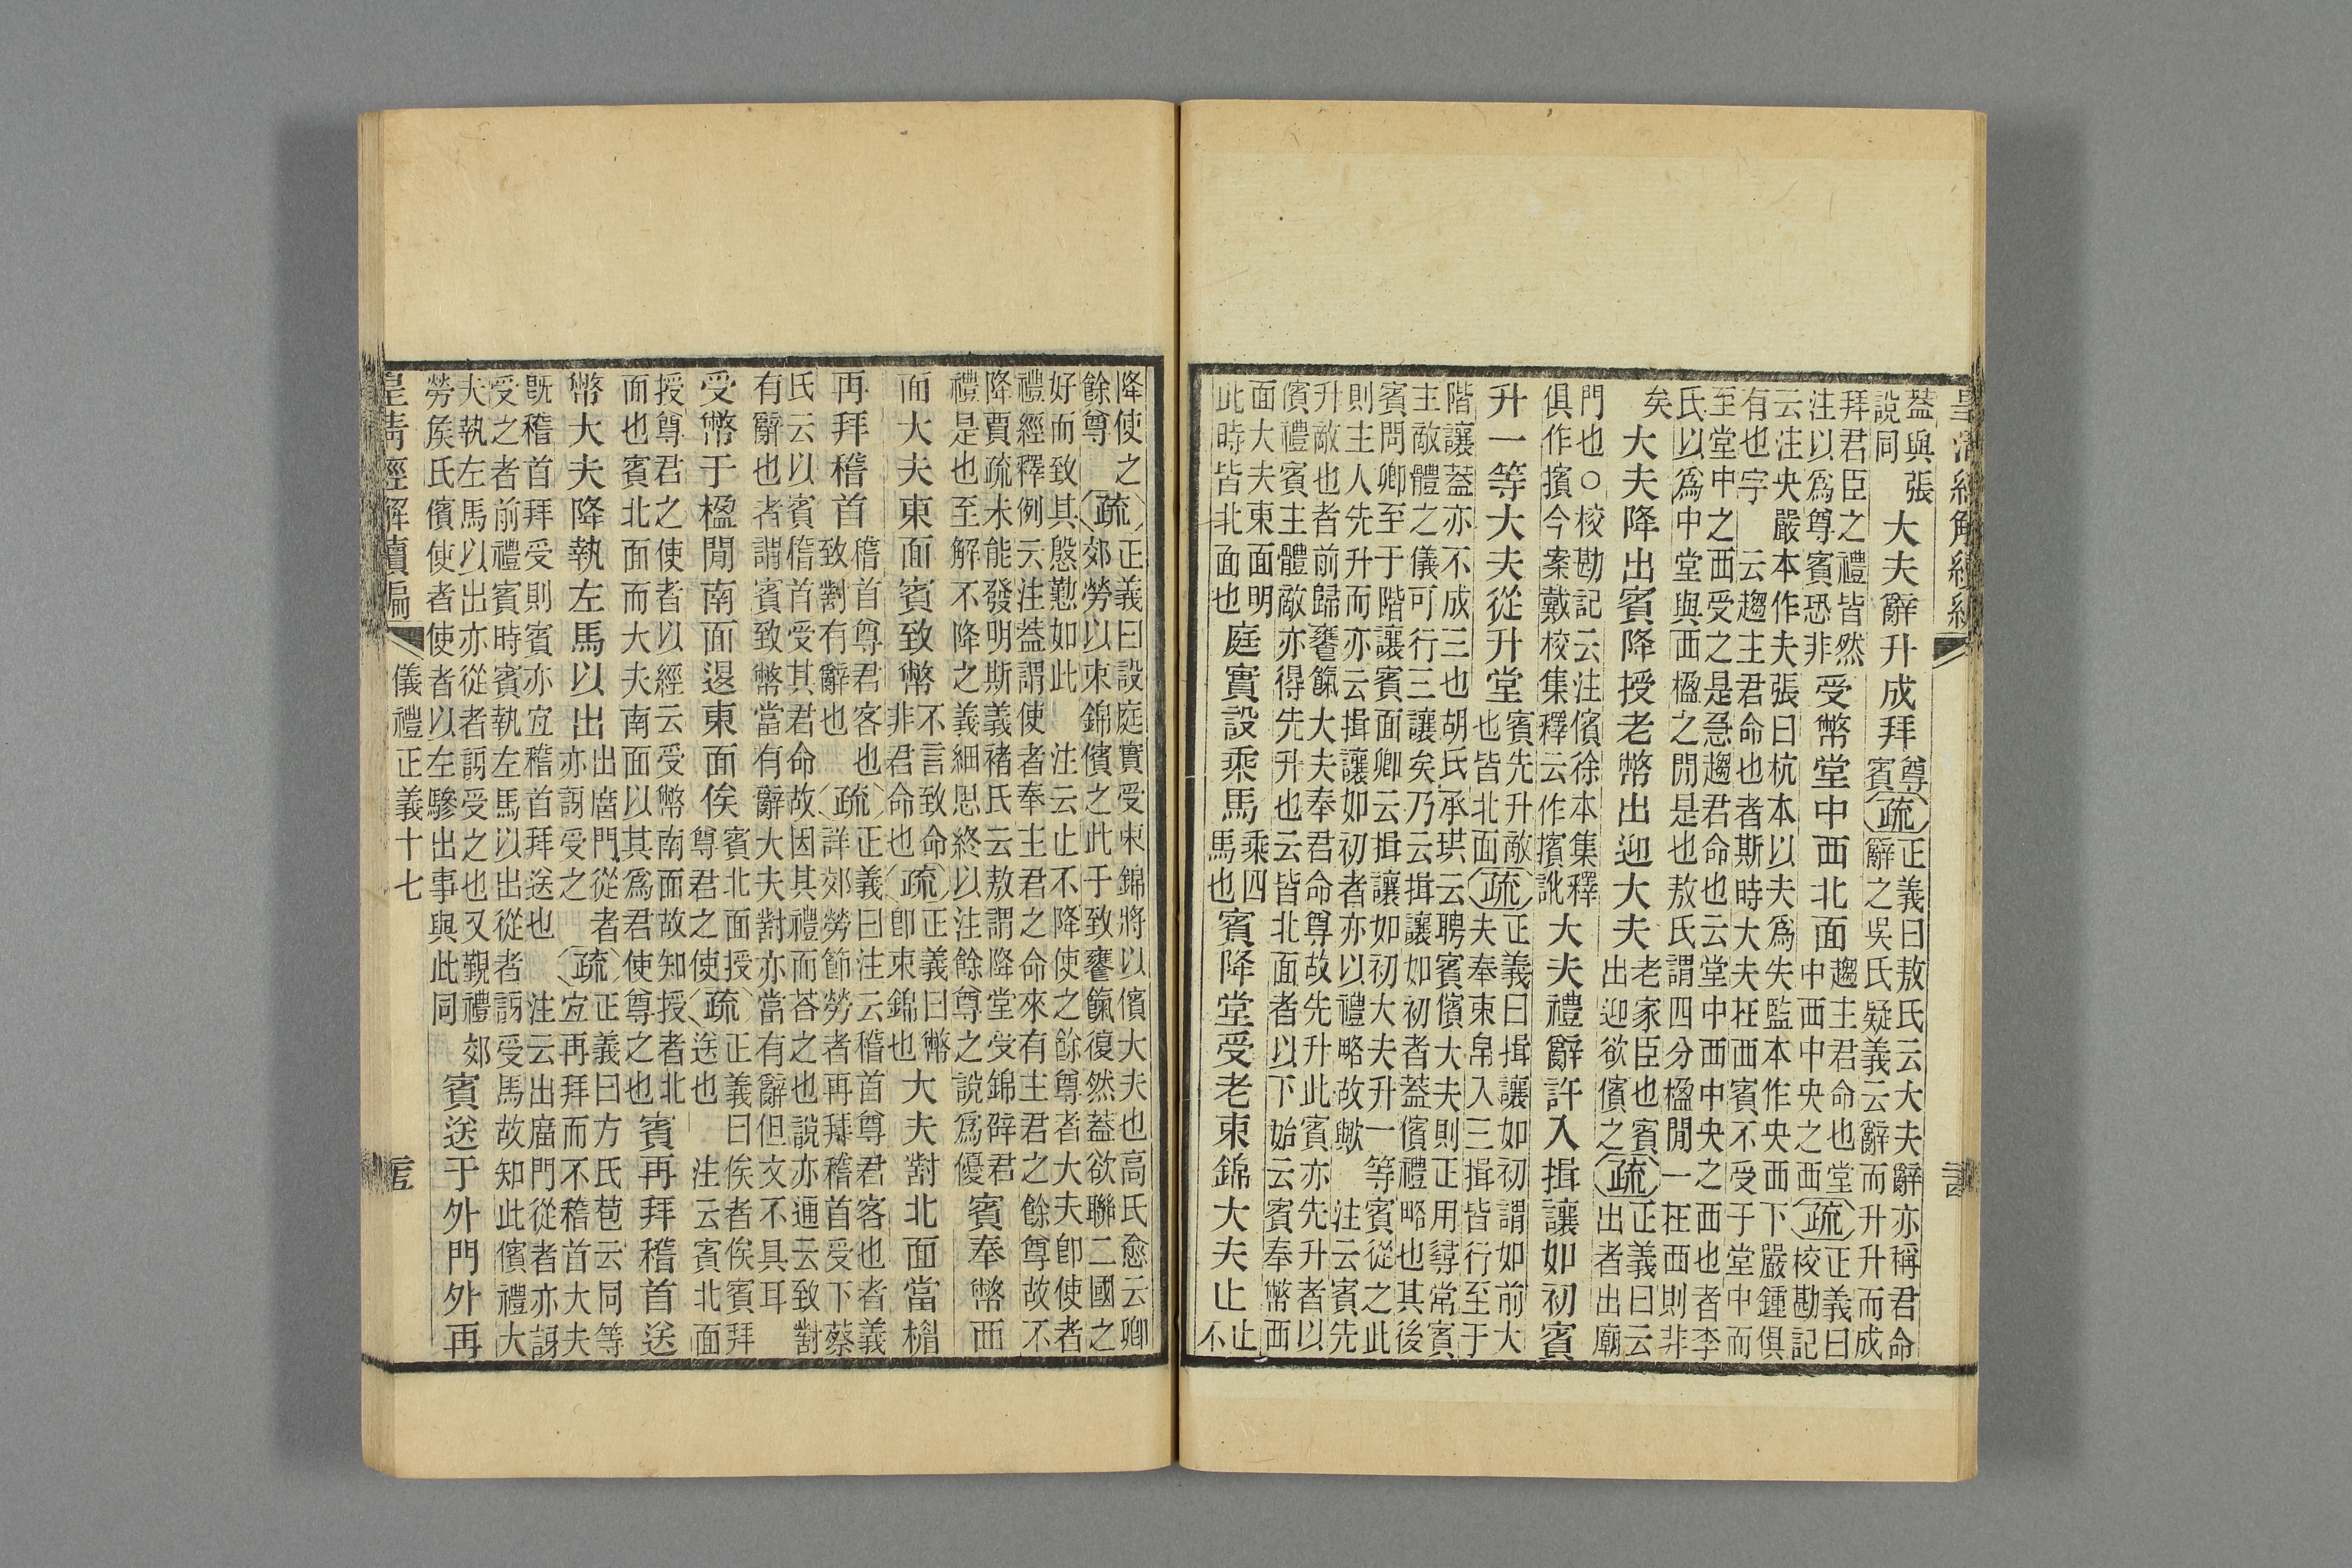 蓋與張
說同
大夫辭升成拜
尊
賓
疏
正義曰敖氏云大夫辭亦稱君命
辭之吳氏疑義云辭而升升而成
拜君臣之禮皆然
注以爲尊賓恐非
受幣堂中西北面
趨主君命也堂
中西中央之西
疏
正義曰
校勘記
云注央嚴本作夫張曰杭本以夫爲失監本作央西下嚴鍾俱
有也字　云趨主君命也者斯時大夫在西賓不受于堂中而
至堂中之西受之是急趨君命也云堂中西中央之西也者李
氏以爲中堂與西楹之閒是也敖氏謂四分楹閒一在西則非
矣
大夫降出賓降授老幣出迎大夫
老家臣也賓
出迎欲儐之
疏
正義曰云
出者出廟
門也○校勘記云注儐徐本集釋
俱作擯今案戴校集釋云作擯訛
大夫禮辭許入揖讓如初賓
升一等大夫從升堂
賓先升敵
也皆北面
疏
正義曰揖讓如初謂如前大
夫奉束帛入三揖皆行至于
階讓蓋亦不成三也胡氏承珙云聘賓儐大夫則正用尋常賓
主敵體之儀可行三讓矣乃云揖讓如初者蓋儐禮略也其後
賓問卿至于階讓賓面卿云揖讓如初大夫升一等賓從之此
則主人先升而亦云揖讓如初者亦以禮略故歟　注云賓先
升敵也者前歸饔餼大夫奉君命尊故先升此賓亦先升者以
儐禮賓主體敵亦得先升也云皆北面者以下始云賓奉幣西
面大夫東面明
此時皆北面也
庭實設乘馬
乘四
馬也
賓降堂受老束錦大夫止
止
不
降使之
餘尊
疏
正義曰設庭實受束錦將以儐大夫也高氏愈云卿
郊勞以束錦儐之此于致饔餼復然蓋欲聯二國之
好而致其慇懃如此　注云止不降使之餘尊者大夫卽使者
禮經釋例云注蓋謂使者奉主君之命來有主君之餘尊故不
降賈疏未能發明斯義褚氏云敖謂降堂受錦辟君
禮是也至解不降之義細思終以注餘尊之說爲優
賓奉幣西
面大夫東面賓致幣
不言致命
非君命也
疏
正義曰幣
卽束錦也
大夫對北面當楣
再拜稽首
稽首尊君客也
致對有辭也
疏
正義曰注云稽首尊君客也者義
詳郊勞節勞者再拜稽首受下蔡
氏云以賓稽首受其君命故因其禮而荅之也說亦通云致對
有辭也者謂賓致幣當有辭大夫對亦當有辭但文不具耳
受幣于楹閒南面退東面俟
賓北面授
尊君之使
疏
正義曰俟者俟賓拜
送也　注云賓北面
授尊君之使者以經云受幣南面故知授者北
面也賓北面而大夫南面以其爲君使尊之也
賓再拜稽首送
幣大夫降執左馬以出
出廟門從者
亦訝受之
疏
正義曰方氏苞云同等
宜再拜而不稽首大夫
旣稽首拜受則賓亦宜稽首拜送也　注云出廟門從者亦訝
受之者前禮賓時賓執左馬以出從者訝受馬故知此儐禮大
夫執左馬以出亦從者訝受之也又覲禮郊
勞侯氏儐使者使者以左驂出事與此同
賓送于外門外再
皇清經解續編
儀禮正義十七